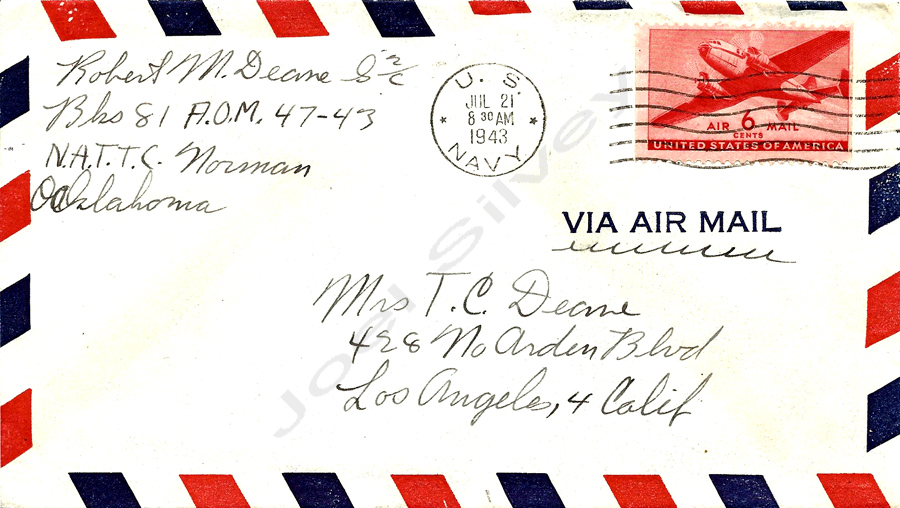 Robert M. Deane S2/c
Bks 81 A.O.M. 47-43
N.A.T.T.C. Norman
Oklahoma
U. S.
JUL 21
8 30 AM
1943
NAVY
AIR 6 MAIL
CENTS
UNITED STATES OF AMERICA
VIA AIR MAIL
Mrs T. C. Deane
428 No Arden Blvd
Los Angeles, 4 Calif
Joel Silvey